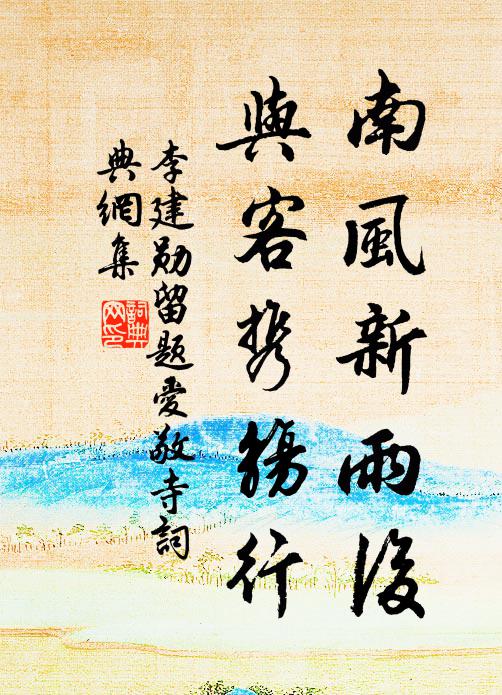 南風新雨後
與客携觴行
李建勋留題愛敬寺詞
典網集
詞典
网印